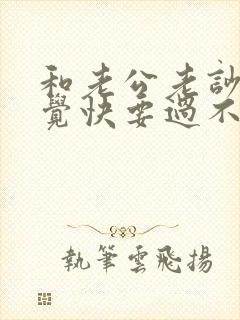 和老公老訟
覺快要過不
執筆雲飛揚